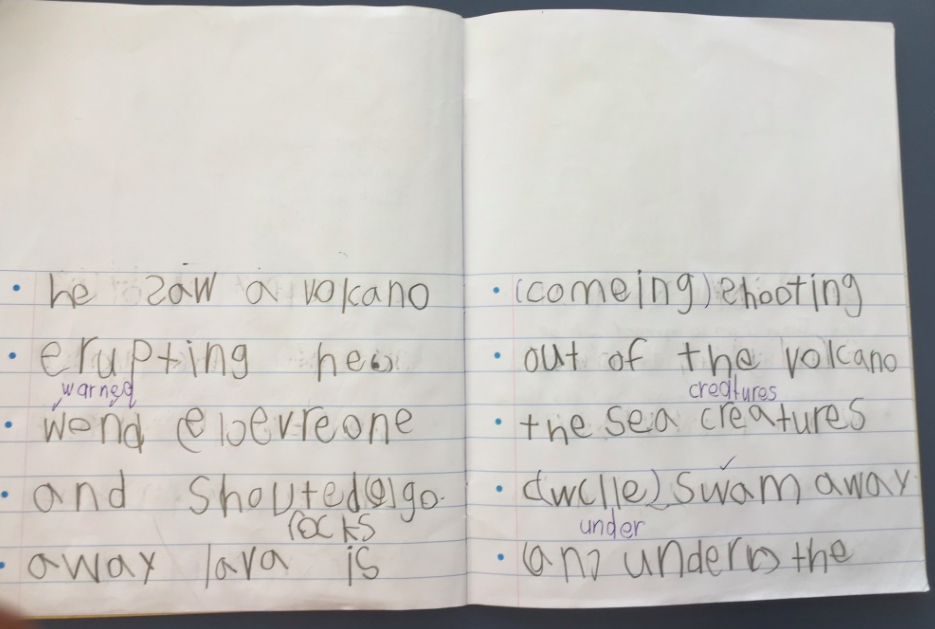 he saw a volcano
erupting he
warned
wend evereone
and shouted go
rocks
away lava is
(comeing) shooting
out of the volcano
creatures
the sea creatures
swam away
under
under the